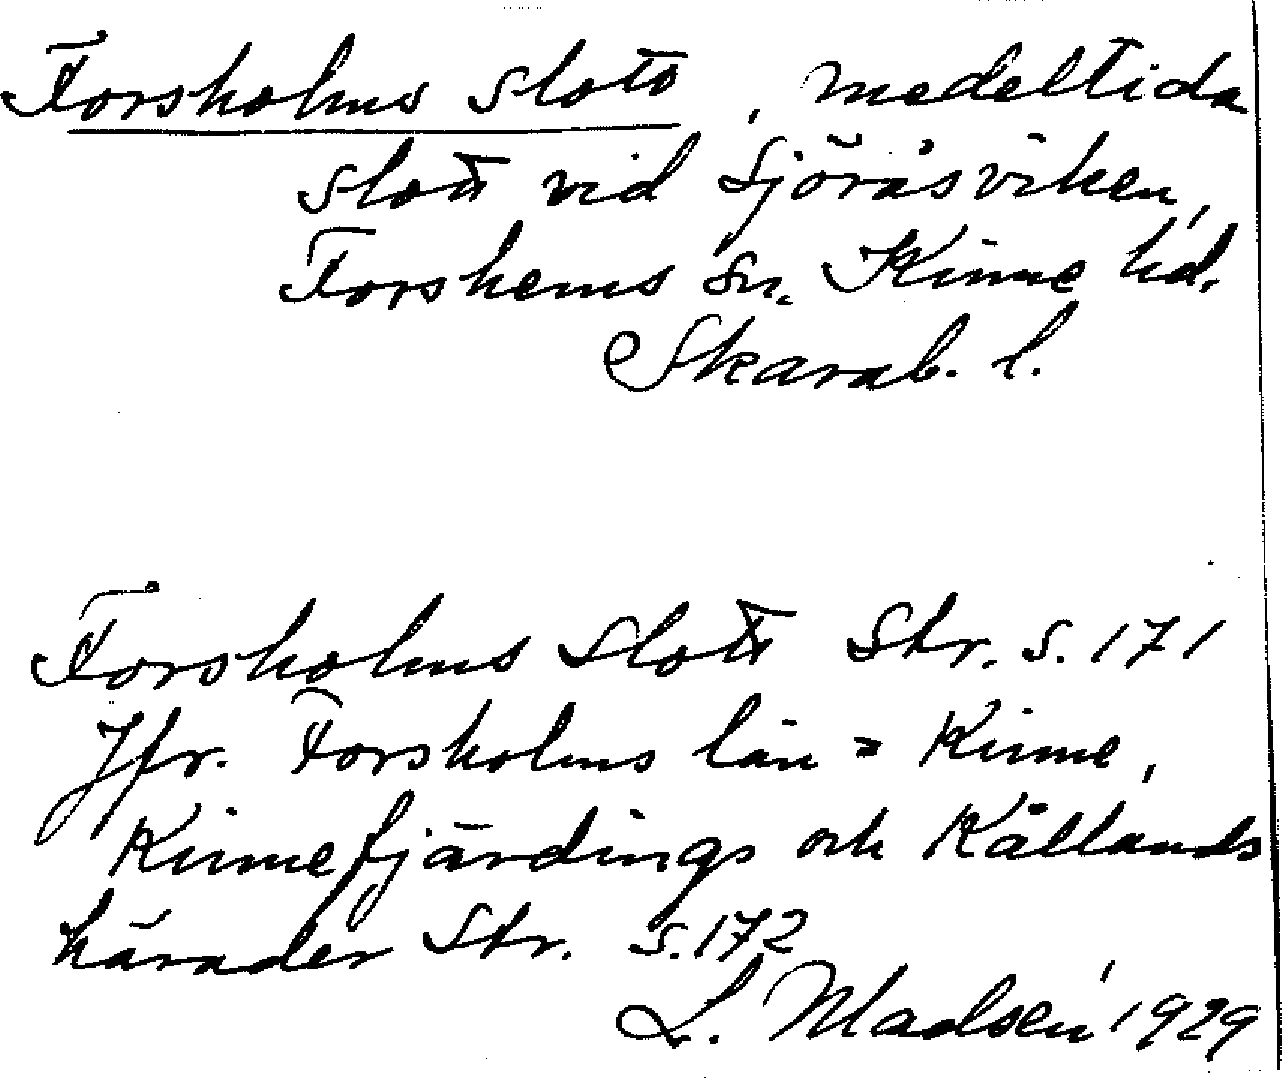 Forsholms slott, medeltida
slott vid Sjöråsviken,
Forshems sn. Kinne hd.
Skarab. l.
Forsholms Slott Str. s. 171
Jfr. Forsholms län = Kinne,
Kinnefjärdings och Kållands
härader Str. s. 172
L. Madsen 1929